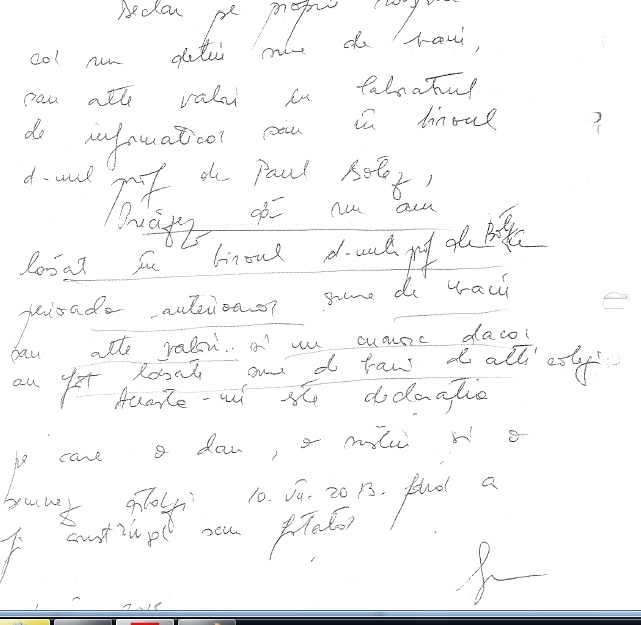 Declar pe propria
că nu dețin sume de bani,
sau alte valori în laboratorul
de informatică sau în biroul
d-nul prof dr Paul Botez,
Precizez că nu am
lăsat în biroul d-nului prof dr Botez
perioada anterioară sume de bani
sau alte valori.. și nu cunosc dacă
au fost lăsate sume de bani de alți colegi
Aceasta-mi este declarația
pe care o dau, o susțin și o
semnez astăzi 10. VII. 2013. fără a
fi constrâns sau